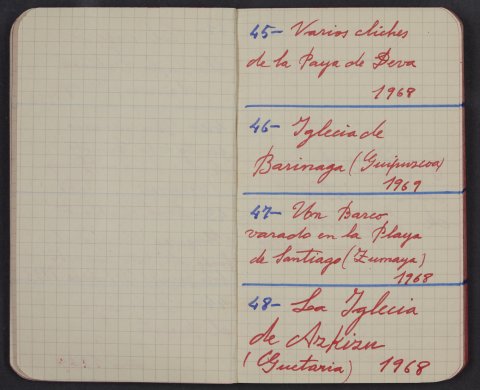 45- Varios cliches
de la Paya de Deva
1968
46- Iglecia de
Barinaga (Guipuzcoa)
1969
47- Un Barco
varado en la Playa
de Santiago (Zumaya)
1968
48- La Iglecia
de Azkizu
(Guetaria) 1968